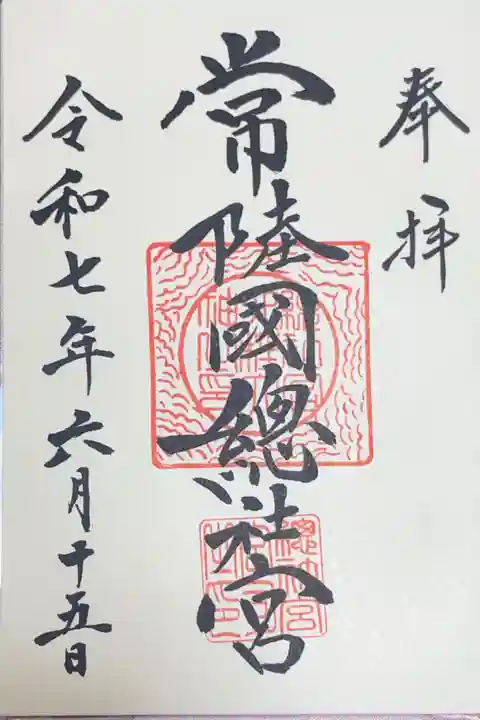 奉拝
常陸國總社宮
令和七年六月十五日